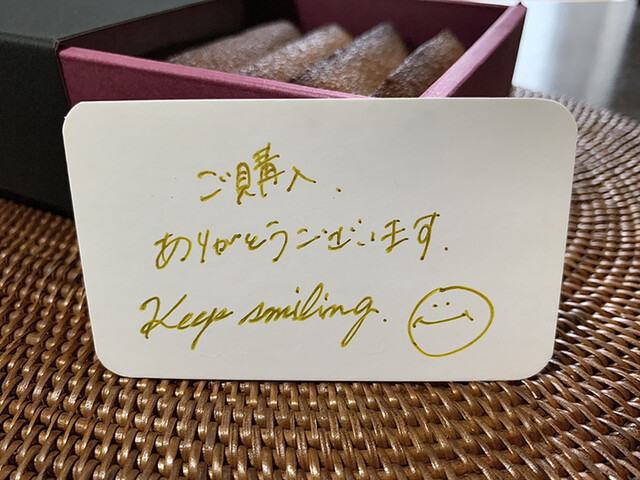 ご購入.
ありがとうございます.
Keep smiling.